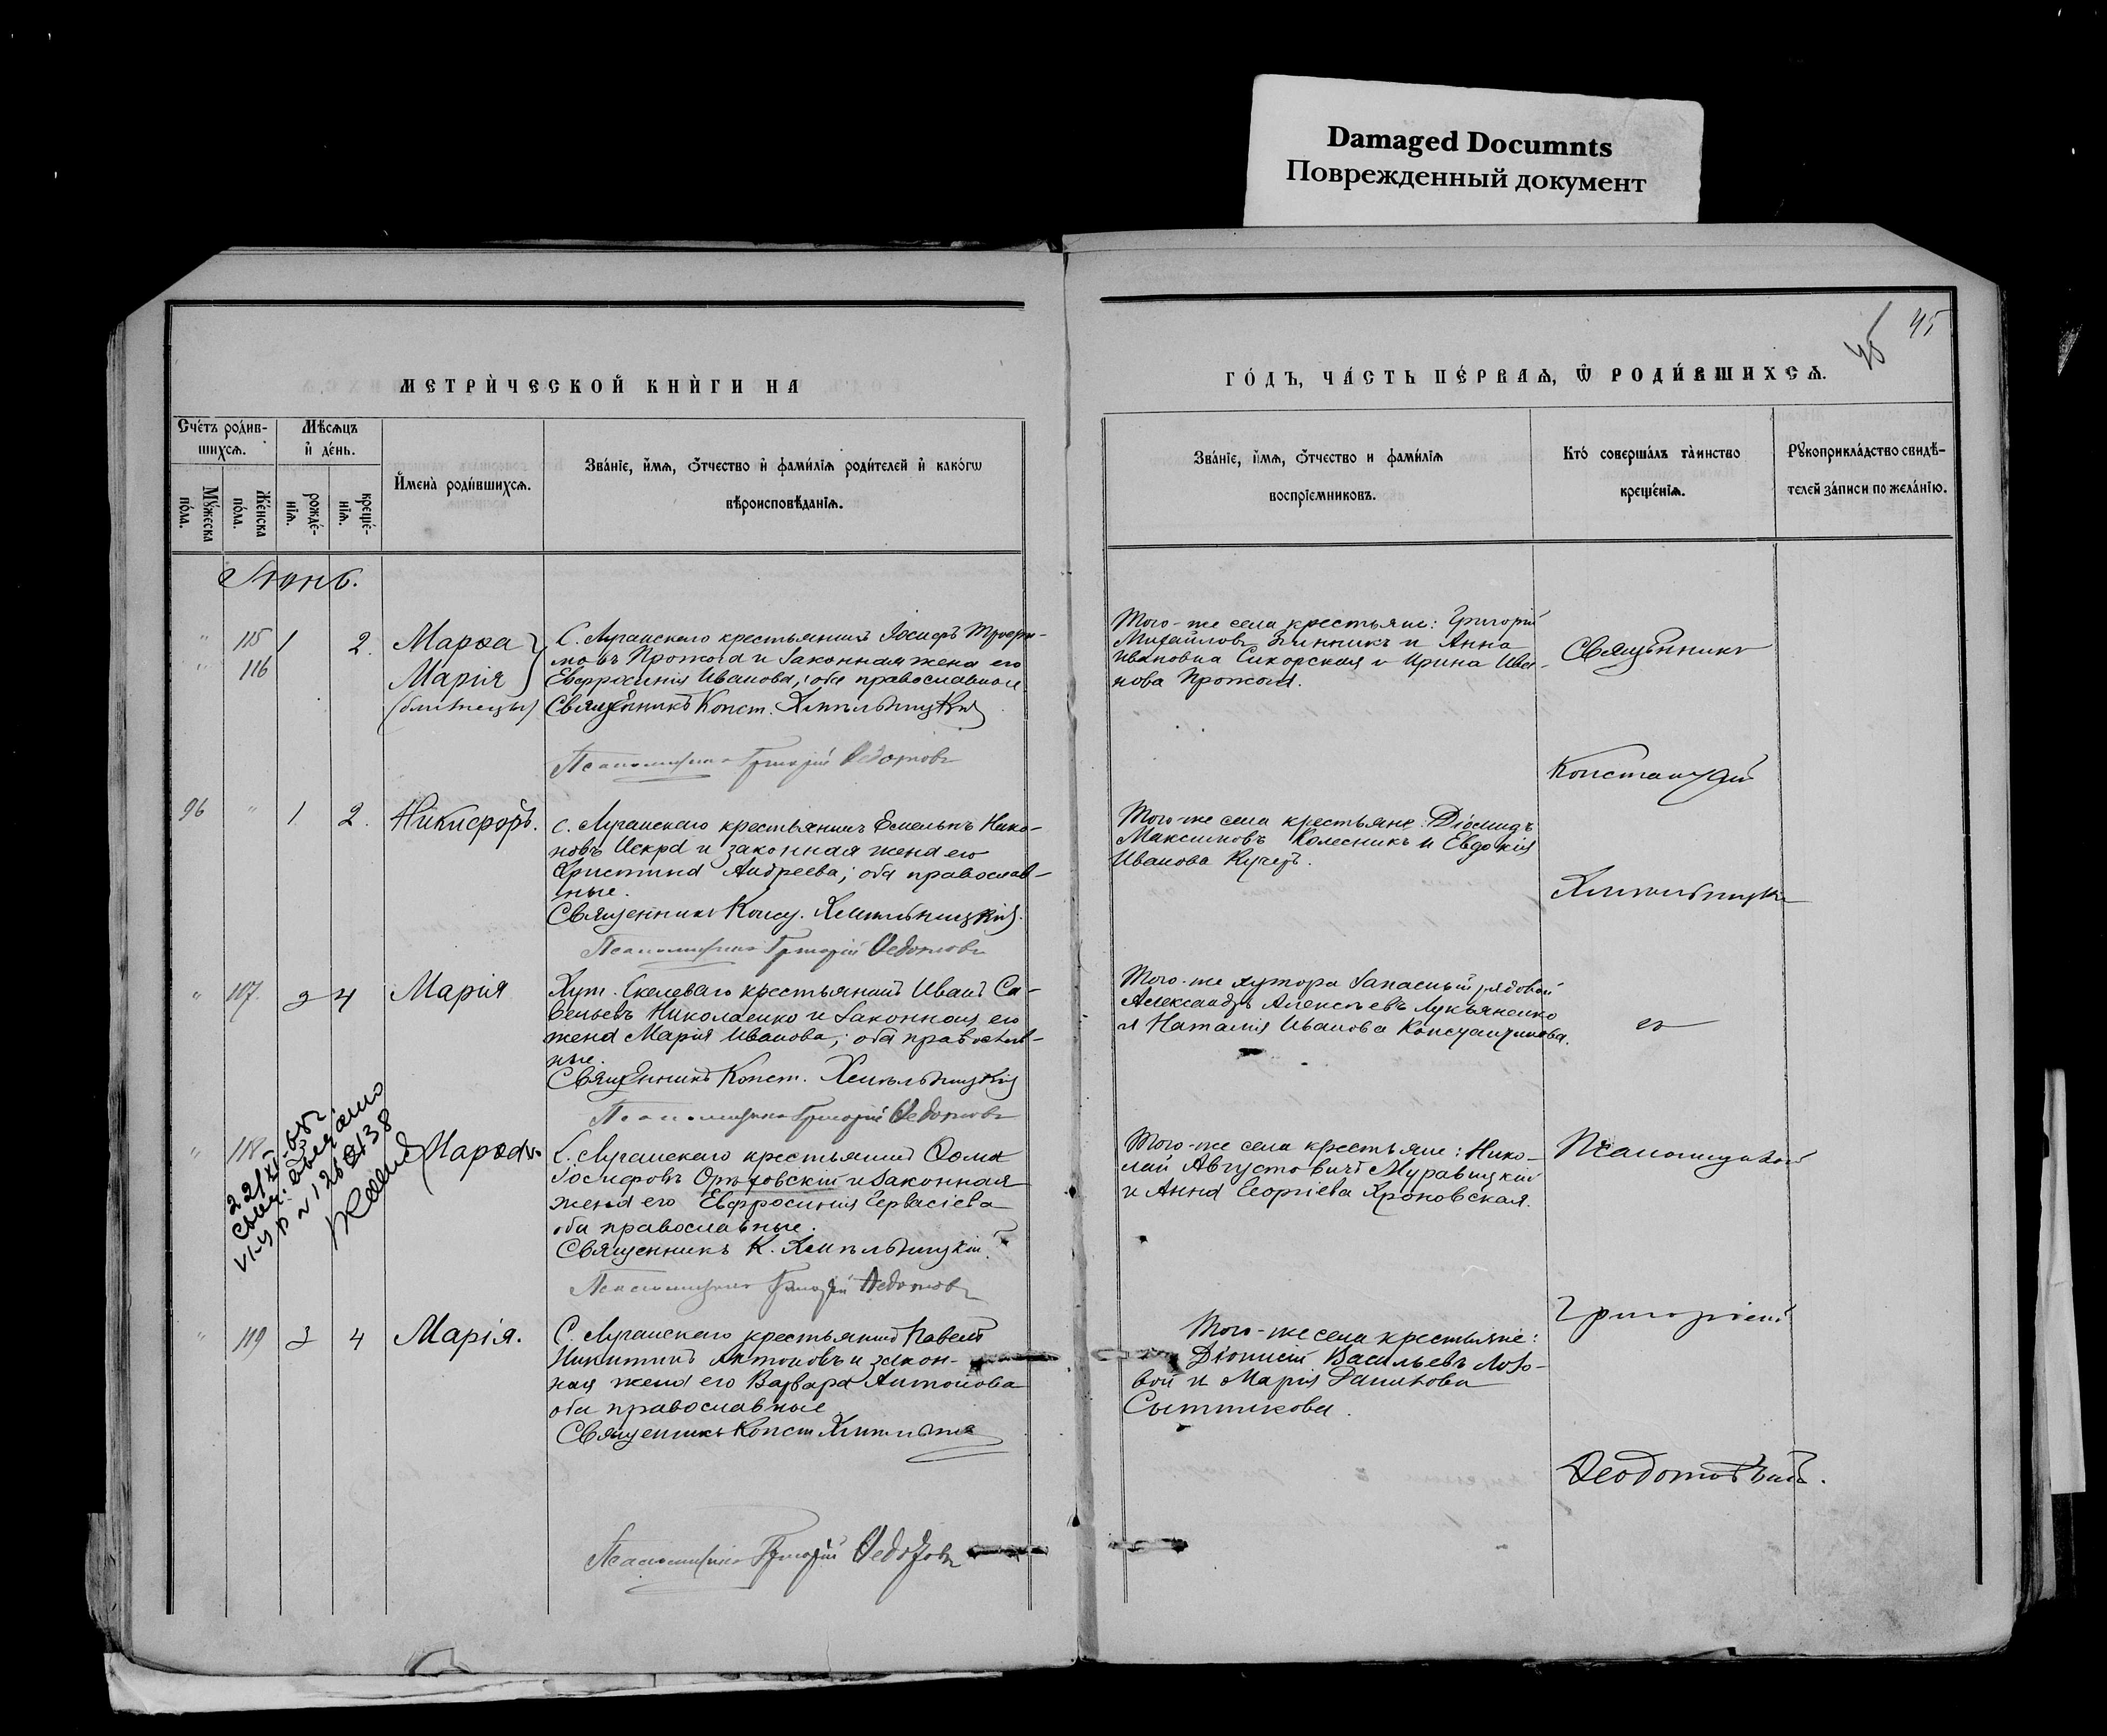 Damaged Documnts
Поврежденный документ
45
45
МЕТРИ́ЧЕСКОЙ КНИ́ГИ НА
ГО́ДЪ, ЧА́СТЬ ПЕ́РВАѦ, Ѿ РОДИ́ВШИХСѦ.
Сче́тъ роди́в-
шихсѧ.
Мѣ́сѧцъ
и҆ де́нь.
Мꙋ́жеска
по́ла.
Же́нска
по́ла.
рожде́-
нїѧ.
креще́-
нїѧ.
И҆мена̀ роди́вшихсѧ.
Зва́нїе, и҆́мѧ, ѻ҆́тчество и҆ фами́лїѧ роди́телей и҆ како́гѡ
вѣроисповѣ́данїѧ.
Зва́нїе, и҆́мѧ, ѻ҆́тчество и фами́лїѧ
воспрїе́мниковъ.
Кто́ соверша́лъ та̀инство
креще́нїѧ.
Рꙋкоприкла́дство свидѣ́-
телей за́писи по жела́нїю.
Іюнь.
" 115 1 2. Марѳа
" 116 Марія
(близнецы)
С. Луганскаго крестьянинъ Іосифъ Трофи-
мовъ Протога и законная жена его
Евфросинія Иванова, оба православные
Священникъ Конст. Хмѣльницкій
Псаломщикъ Григорій Ѳедотовъ
Того-же села крестьяне: Григорій
Михайловъ Винникъ и Анна
Ивановна Сикорская и Ирина Ива-
нова Протога.
Священникъ
Константинъ
Хмѣльницкій
96 " 1 2. Никифоръ.
С. Луганскаго крестьянинъ Емельянъ Нико-
новъ Искра и законная жена его
Христина Андреева; оба православ-
ные.
Священникъ Конст. Хмѣльницкій.
Псаломщикъ Григорій Ѳедотовъ
Того-же села крестьяне: Діомидъ
Максимовъ Колесникъ и Евдокія
Иванова Кучеръ.
" 117. 3 4 Марія
Хут. Скелеваго крестьянинъ Иванъ Са-
вельевъ Николаенко и законная его
жена Марія Иванова; оба православ-
ные.
Священникъ Конст. Хмѣльницкій
Псаломщикъ Григорій Ѳедотовъ
Того-же хутора запасный рядовой
Александръ Алексѣевъ Лукьяненко
и Наталія Иванова Константинова.
съ
" 118 Марѳа
С. Луганскаго крестьянинъ Ѳома
Іосифовъ Орѣховскій и законная
жена его Евфросинія Гервасіева
оба православные.
Священникъ К. Хмѣльницкій.
Псаломщикъ Григорій Ѳедотовъ
Того-же села крестьяне: Нико-
лай Августовичъ Муравицкій
и Анна Георгіева Хроновская.
Псаломщикомъ
Григоріемъ
Ѳеодотовымъ.
" 119 3 4 Марія.
С. Луганскаго крестьянинъ Павелъ
Никитинъ Антоновъ и закон-
ная жена его Варвара Антонова
оба православные
Священникъ Конст Хмѣльницкій
Псаломщикъ Григорій Ѳедотовъ
Того-же села крестьяне:
Діонисій Васильевъ Лозо-
вой и Марія Данилова
Сытникова.